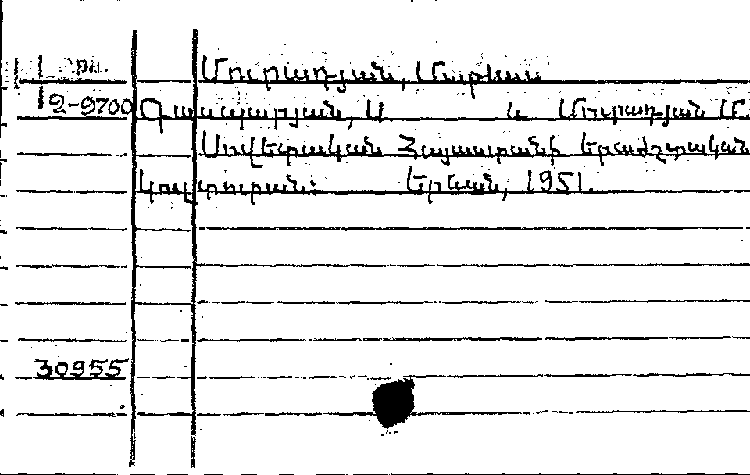 Մուրադյան, Մաթևոս
2-9700 Գասպարյան, Ա. և Մուրադյան Մ.
Սովետական Հայաստանի երաժշտական
կուլտուրան: Երևան, 1951.
30955